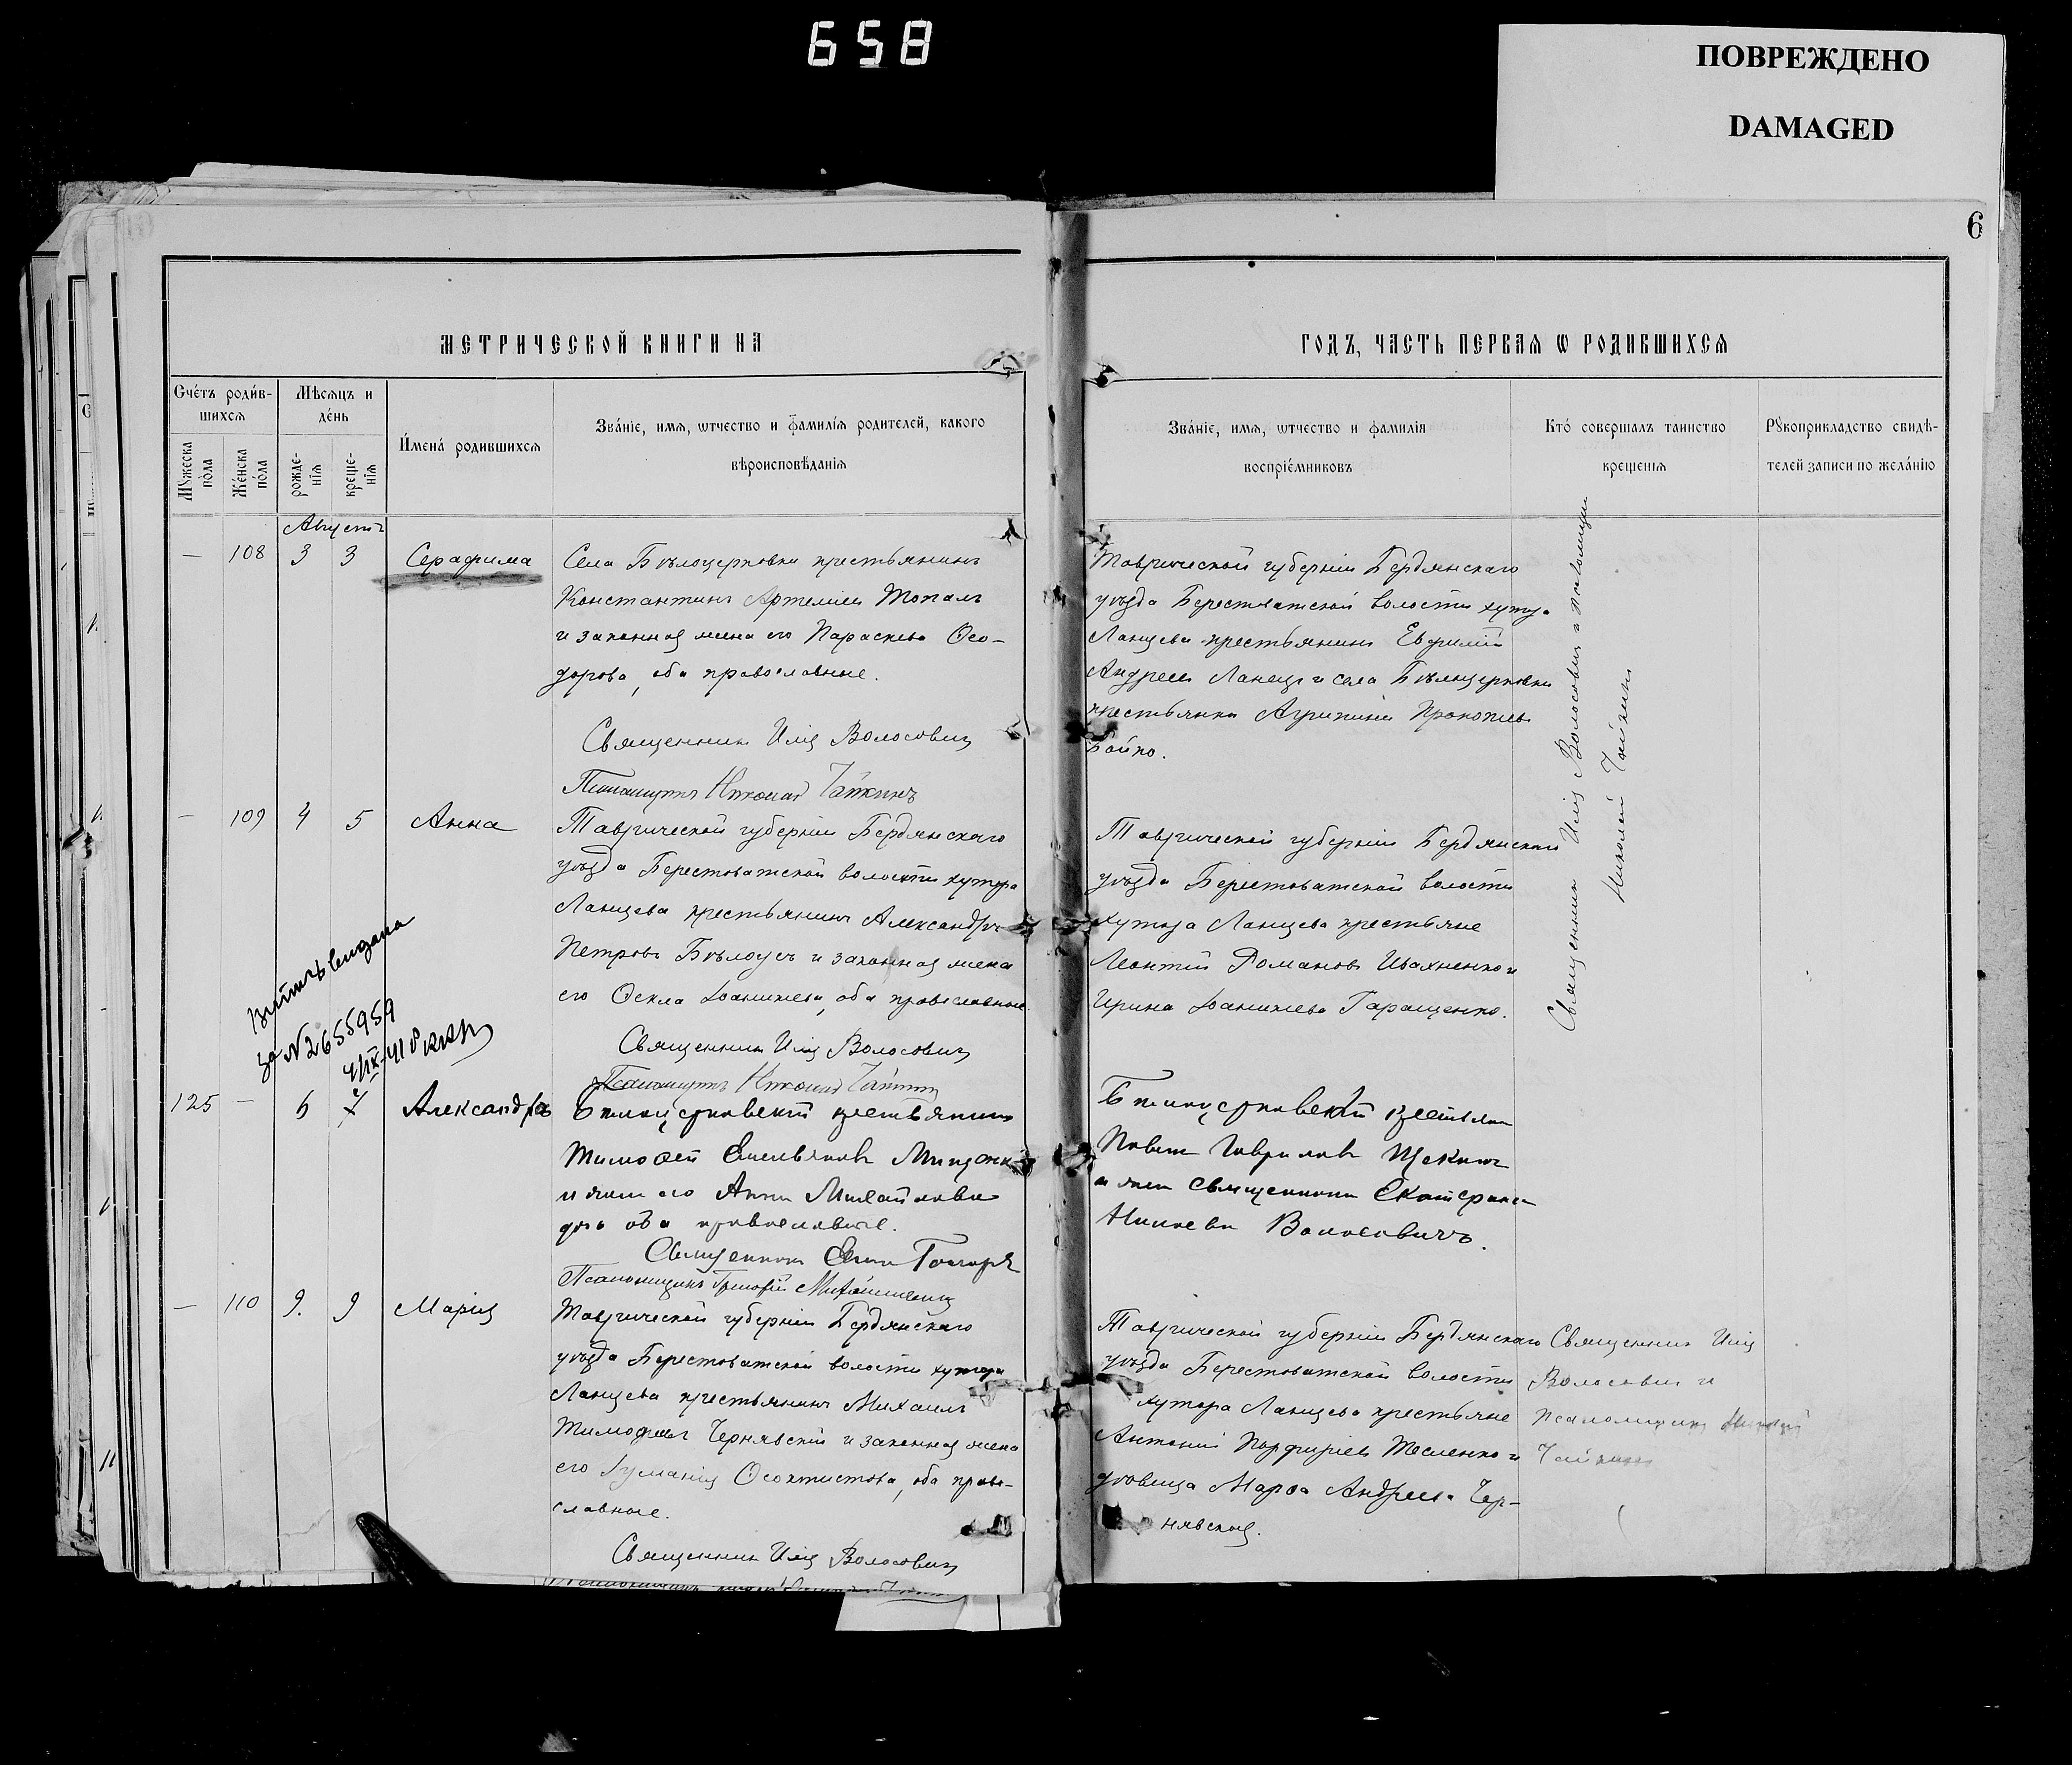 658
ПОВРЕЖДЕНО
DAMAGED
6
МЕТРИЧЕСКОЙ КНИГИ НА
ГОДЪ, ЧАСТЬ ПЕРВАЯ Ѡ РОДИВШИХСЯ
Счетъ родившихся
Мужеска пола
Женска пола
Мѣсяцъ и день
рожденія
крещенія
Имена родившихся
Званіе, имя, ѿчество и фамилія родителей, какого
вѣроисповѣданія
Званіе, имя, ѿчество и фамилія
воспріемниковъ
Кто совершалъ таинство
крещенія
Рꙋкоприкладство свидѣ-
телей записи по желанію
Августъ
— 108 3 3 Серафима
Села Бѣлоцерковки крестьянинъ
Константинъ Артеміевъ Топалъ
и законная жена его Параскева Ѳео-
дорова, оба православные.
Священникъ Илія Волосовичъ
Псаломщикъ Николай Чайкинъ
Таврической губерніи Бердянскаго
уѣзда Берестоватской волости хутора
Ланцева крестьянинъ Евфимій
Андреевъ Ланецъ и села Бѣлоцерковки
крестьянка Агрипина Прокопіева
Бойко.
Священникъ Илія Волосовичъ и псаломщикъ
Николай Чайкинъ
— 109 4 5 Анна
Таврической губерніи Бердянскаго
уѣзда Берестоватской волости хутора
Ланцева крестьянинъ Александръ
Петровъ Бѣлоусъ и законная жена
его Ѳекла Іоаникіева, оба православные.
Священникъ Илія Волосовичъ
Псаломщикъ Николай Чайкинъ
Таврической губерніи Бердянскаго
уѣзда Берестоватской волости
хутора Ланцева крестьяне
Леонтій Романовъ Ивахненко и
Ирина Іоаникіева Гаращенко.
за №2655959
125 — 6 7 Александръ
Бѣлоцерковскій крестьянинъ
Тимоѳей Емельяновъ
и жена его Анна Михайлова
оба православные.
Священникъ
Псаломщикъ Григорій
Бѣлоцерковскій крестьян
Павелъ Гавриловъ Щекинъ
и жена священника Екатерина
Волосовичъ.
— 110 9. 9 Марія
Таврической губерніи Бердянскаго
уѣзда Берестоватской волости хутора
Ланцева крестьянинъ Михаилъ
Тимофеевъ Чернявскій и законная жена
его Ѳеоктистова, оба право-
славные.
Священникъ Илія Волосовичъ
Таврической губерніи Бердянскаго
уѣзда Берестоватской волости
хутора Ланцева крестьяне
Антоній Порфиріевъ Тесленко и
дѣвица Марѳа Андреева Чер-
нявская.
Священникъ Илія
Волосовичъ и
псаломщикъ Николай
Чайкинъ